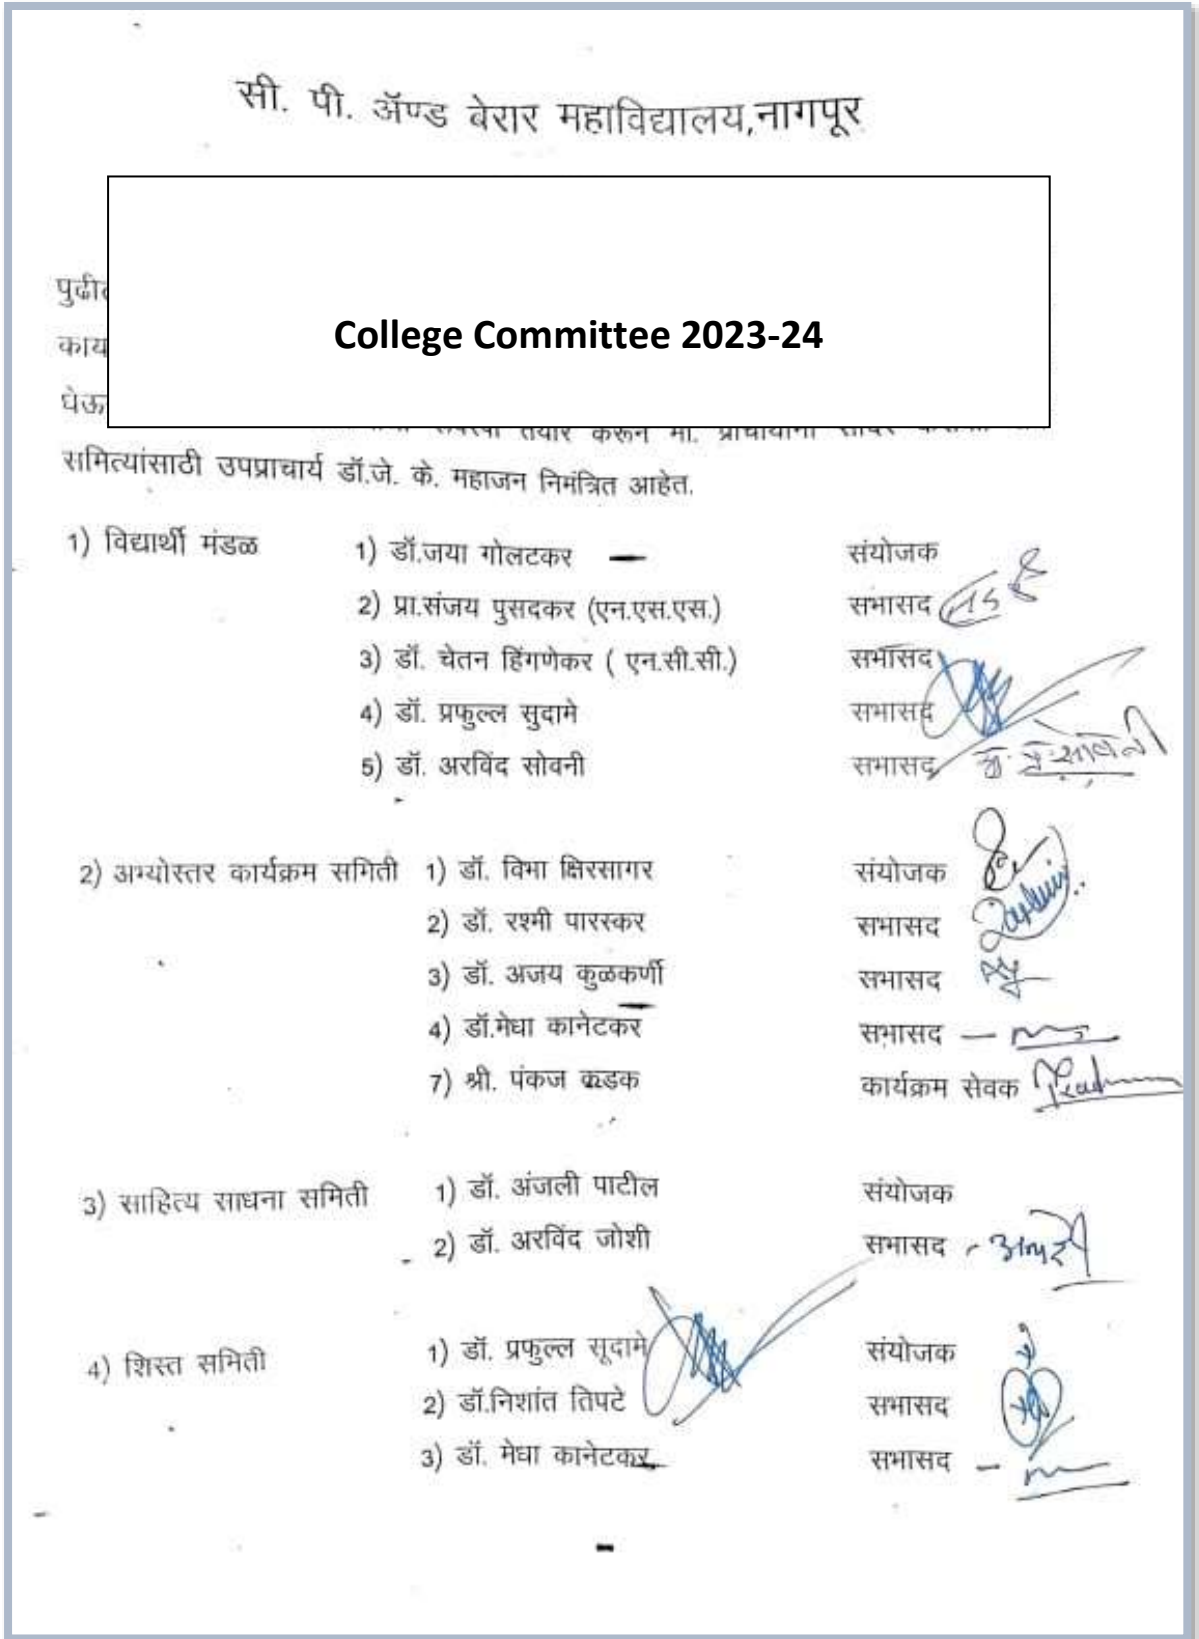 सी. पी. ॲण्ड बेरार महाविद्यालय,नागपूर
College Committee 2023-24
तयार करून मा. प्राचार्यांना सादर
समित्यांसाठी उपप्राचार्य डॉ.जे. के. महाजन निमंत्रित आहेत.
1) विद्यार्थी मंडळ 1) डॉ.जया गोलटकर संयोजक
2) प्रा.संजय पुसदकर (एन.एस.एस.) सभासद
3) डॉ. चेतन हिंगणेकर ( एन.सी.सी.) सभासद
4) डॉ. प्रफुल्ल सुदामे सभासद
5) डॉ. अरविंद सोवनी सभासद
2) अभ्योस्तर कार्यक्रम समिती 1) डॉ. विभा क्षिरसागर संयोजक
2) डॉ. रश्मी पारस्कर सभासद
3) डॉ. अजय कुळकर्णी सभासद
4) डॉ.मेधा कानेटकर सभासद
7) श्री. पंकज कडक कार्यक्रम सेवक
3) साहित्य साधना समिती 1) डॉ. अंजली पाटील संयोजक
2) डॉ. अरविंद जोशी सभासद
4) शिस्त समिती 1) डॉ. प्रफुल्ल सूदामे संयोजक
2) डॉ.निशांत तिपटे सभासद
3) डॉ. मेधा कानेटकर सभासद